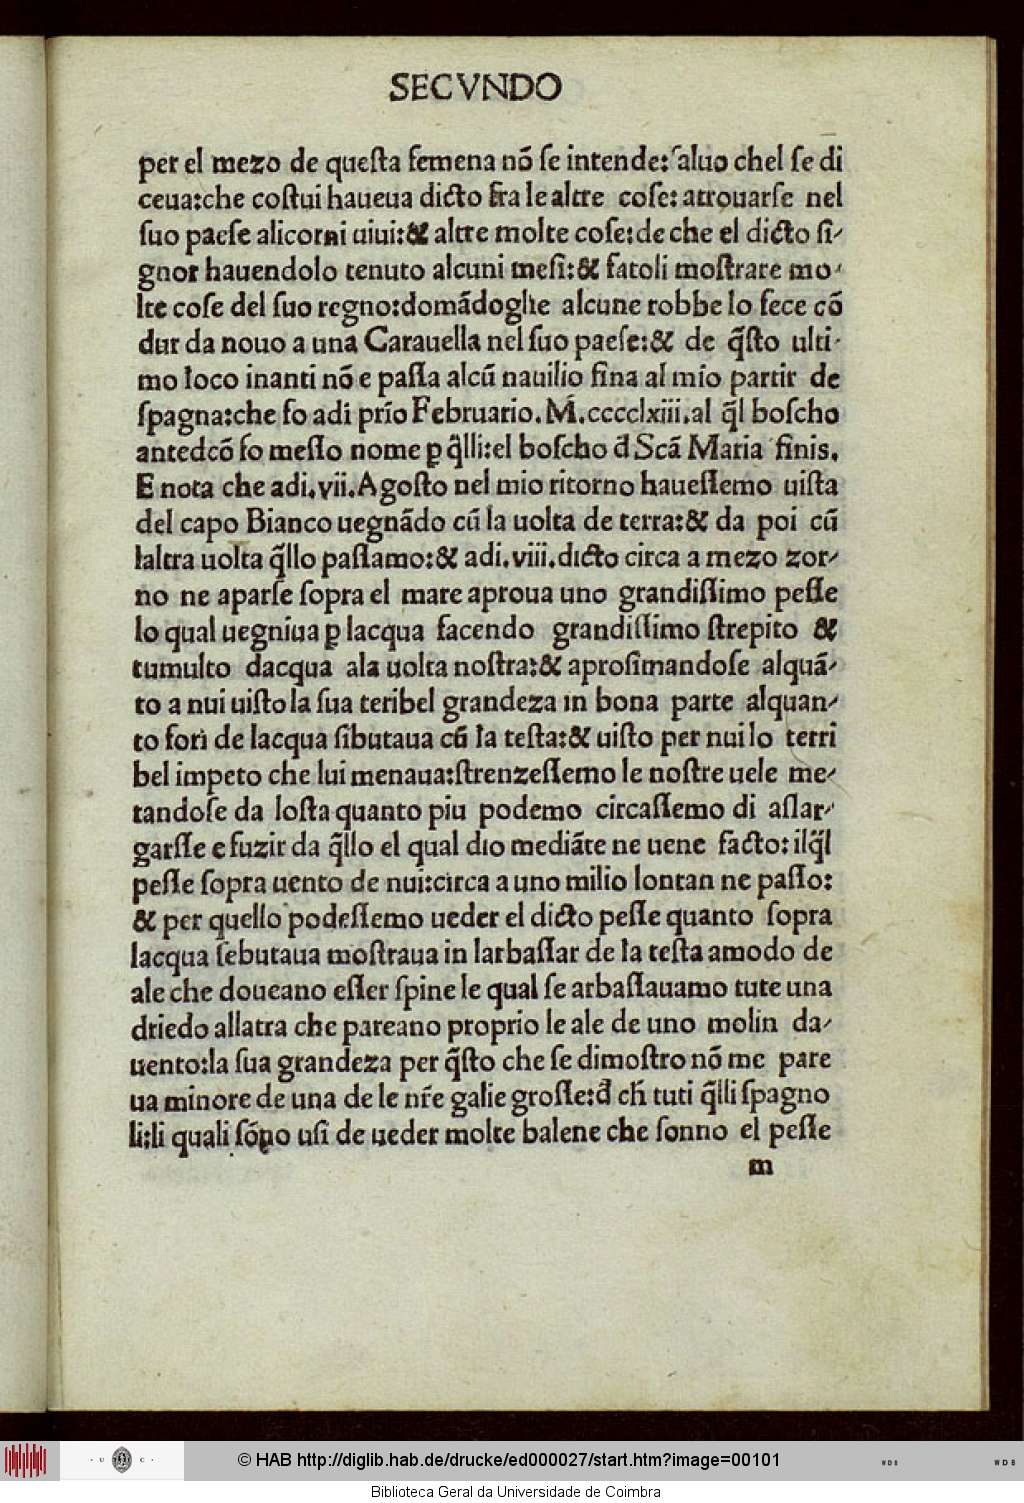 SECVNDO
per el mezo de queſta femena nõ ſe intende: ſaluo chel ſe di
ceua:che coſtui haueua dicto fra le altre coſe: atrouarſe nel
ſuo paeſe alicorni uiui:& altre molte coſe:de che el dicto ſi⸗
gnor hauendolo tenuto alcuni meſi:& fatoli moſtrare mo⸗
lte coſe del ſuo regno:domãdoglie alcune robbe lo fece cõ
dur da nouo a una Carauella nel ſuo paeſe:& de q̃ſto ulti⸗
mo loco inanti nõ e paſſa alcũ nauilio fina al mio partir de
ſpagna:che fo adi prīo Februario.M.cccclxiii.al q̃l boſcho
antedcõ fo meſſo nome ꝑ q̃lli:el boſcho đ Scã Maria finis.
E nota che adi.vii.Agoſto nel mio ritorno haueſſemo uiſta
del capo Bianco uegnãdo cũ la uolta de terra:& da poi cũ
laltra uolta q̃llo paſſamo:& adi.viii.dicto circa a mezo zor⸗
no ne aparſe ſopra el mare aproua uno grandiſſimo peſſe
lo qual uegniua ꝑ lacqua facendo grandiſſimo ſtrepito &
tumulto dacqua ala uolta noſtra:& aproſimandoſe alquã⸗
to a nui uiſto la ſua teribel grandeza in bona parte alquan⸗
to fori de lacqua ſibutaua cũ la teſta:& uiſto per nui lo terri
bel impeto che lui menaua:ſtrenzeſſemo le noſtre uele me⸗
tandoſe da loſta quanto piu podemo circaſſemo di aſlar⸗
garſſe e fuzir da q̃llo el qual dio mediãte ne uene facto: ilq̃l
peſſe ſopra uento de nui:circa a uno milio lontan ne paſſo:
& per quello podeſſemo ueder el dicto peſſe quanto ſopra
lacqua ſebutaua moſtraua in larbaſſar de la teſta amodo de
ale che doueano eſſer ſpine le qual ſe arbaſſauamo tute una
driedo allatra che pareano proprio le ale de uno molin da⸗
uento:la ſua grandeza per q̃ſto che ſe dimoſtro nõ me pare
ua minore de una de le nr̃e galie groſſe:đ ch̃ tuti q̃lli ſpagno
li:li quali ſõno uſi de ueder molte balene che ſonno el peſſe
m
© HAB http://diglib.hab.de/drucke/ed000027/start.htm?image=00101
· U C ·
WDB
WDB
Biblioteca Geral da Universidade de Coimbra